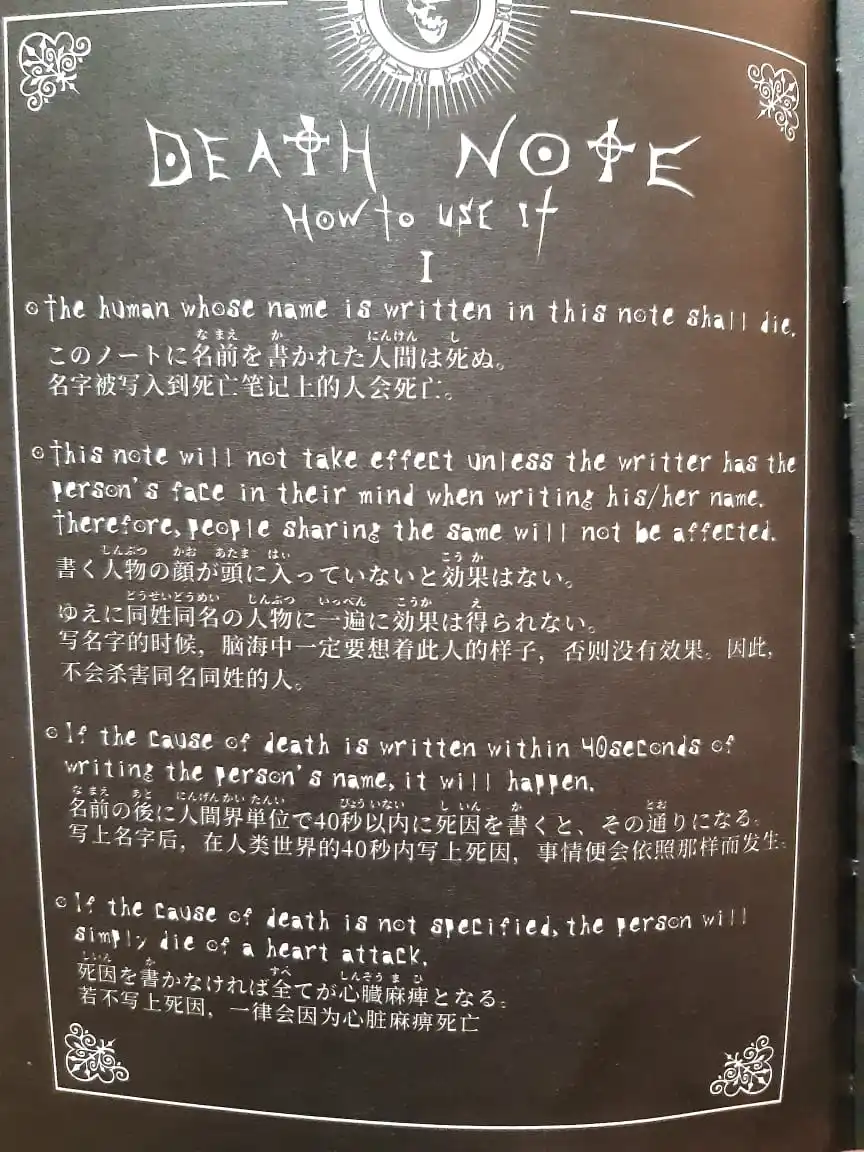 DEATH NOTE
HOW to USE It
I
the human whose name is written in this note shall die.
なまえ か にんけん し
このノートに名前を書かれた人間は死ぬ。
名字被写入到死亡笔记上的人会死亡。
this note will not take effect unless the writter has the
person's face in their mind when writing his/her name.
therefore, people sharing the same will not be affected.
じんぶつ かお あたま はい こうか
書く人物の顔が頭に入っていないと効果はない。
どうせいどうめい じんぶつ いっぺん こうか え
ゆえに同姓同名の人物に一遍に効果は得られない。
写名字的时候，脑海中一定要想着此人的样子，否则没有效果。因此，
不会杀害同名同姓的人。
If the cause of death is written within 40seconds of
writing the person's name, it will happen.
なまえ あと にんげんかいたんい びょういない しいん か とお
名前の後に人間界単位で40秒以内に死因を書くと、その通りになる。
写上名字后，在人类世界的40秒内写上死因，事情便会依照那样而发生。
If the cause of death is not specified, the person will
simply die of a heart attack.
しいん か すべ しんぞうまひ
死因を書かなければ全てが心臓麻痺となる。
若不写上死因，一律会因为心脏麻痹死亡